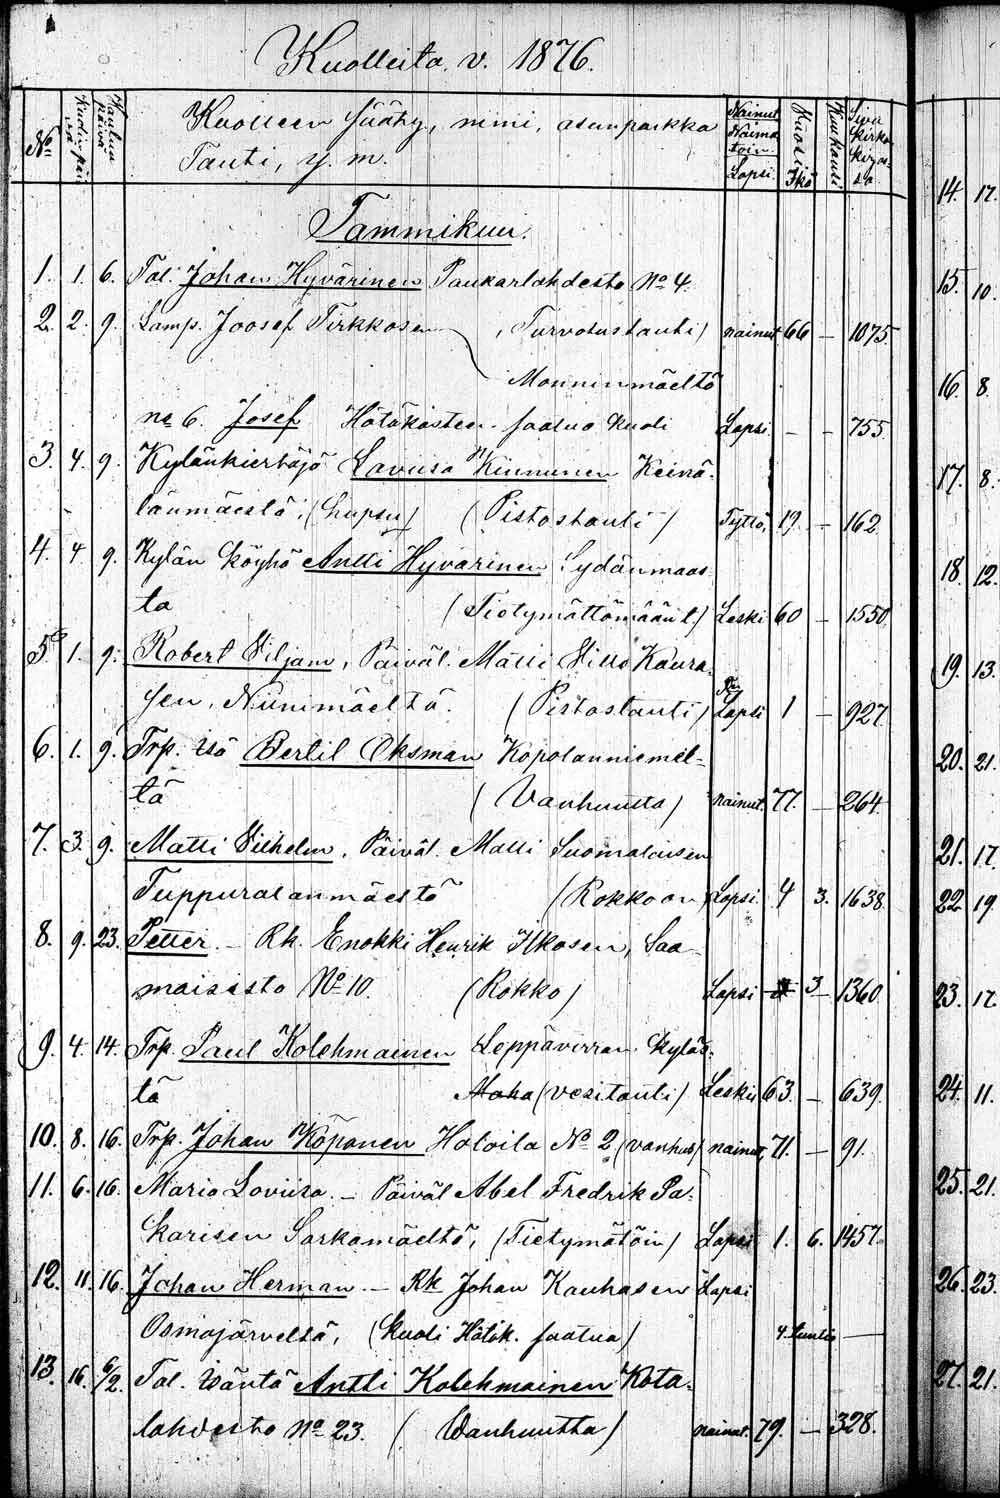 Kuolleita v. 1876.
No
Kuolinpäivä
Hautauspäivä
Kuolleen sääty, nimi, asuinpaikka
Tauti, y. m.
Nainut
Naimatoin
Lapsi.
Kuolin Ikä
Kuukausi
Sivu kirkonkirjassa
Tammikuu.
1. 1. 6. Tal. Johan Hyvärinen Paukarlahdesta No 4.
2. 2. 9. Lamp. Joosef Tirkkosen (Turvotustauti) nainut 66 — 1075.
Monninmäeltä
no 6. Josef Hätäkasteen saatua kuoli Lapsi. — — 755.
3. 4. 9. Kylänkiertäjä Lavusa Kinnunen Keinä-
länmäestä, (Lupsu) (Pistostauti) Tyttö, 19. — 162
4. 4 9. Kylän köyhä Antti Hyvärinen Sydänmaas-
ta (Tiotymättömään t.) Leski 60 — 1550.
5. 1. 9. Robert Viljam, Päiväl. Matti Villo Kaura-
sen, Niinimäeltä. (Pistostauti) Lapsi 1 — 927.
6. 1. 9. Trp. Isä Bertil Oksman Kopolanniemel-
tä (Vanhuutta) nainut. 77. — 264.
7. 3. 9. Matti Vilhelm, Päiväl. Matti Suomalaisen
Tuppuralanmäestä (Rokkoon) Lapsi. 4 3. 1638.
8. 9. 23. Petter — Rk. Enokki Henrik Ilkosen, Saa-
maisista No 10. (Rokko) Lapsi — 3 — 1360.
9. 4. 14. Trp. Paul Kolehmainen Leppävirran kyläs-
tä (vesitauti) Leski 63. — 639.
10. 8. 16. Trp. Johan Koponen Hotoila No 2, (vanhus) nainut, 71. — 91.
11. 6. 16. Maria Loviisa — Päiväl Abel Fredrik Pa-
karisen Sarkamäeltä, (Tietymätöin) Lapsi 1. 6. 1457.
12. 11. 16. Johan Herman — Rk Johan Kauhasen Lapsi
Osmajärveltä, (kuoli Hätäk. saatua) 4 tuntia —
13. 16. 6/2. Tal. Isäntä Antti Kolehmainen Kota-
lahdesta No 23. (Wanhuutta) nainut. 79. — 328.
14. 17.
15. 10.
16. 8.
17. 8.
18. 12.
19. 13.
20. 21.
21. 17.
22. 19.
23. 17.
24. 11.
25. 21.
26. 23.
27. 21.